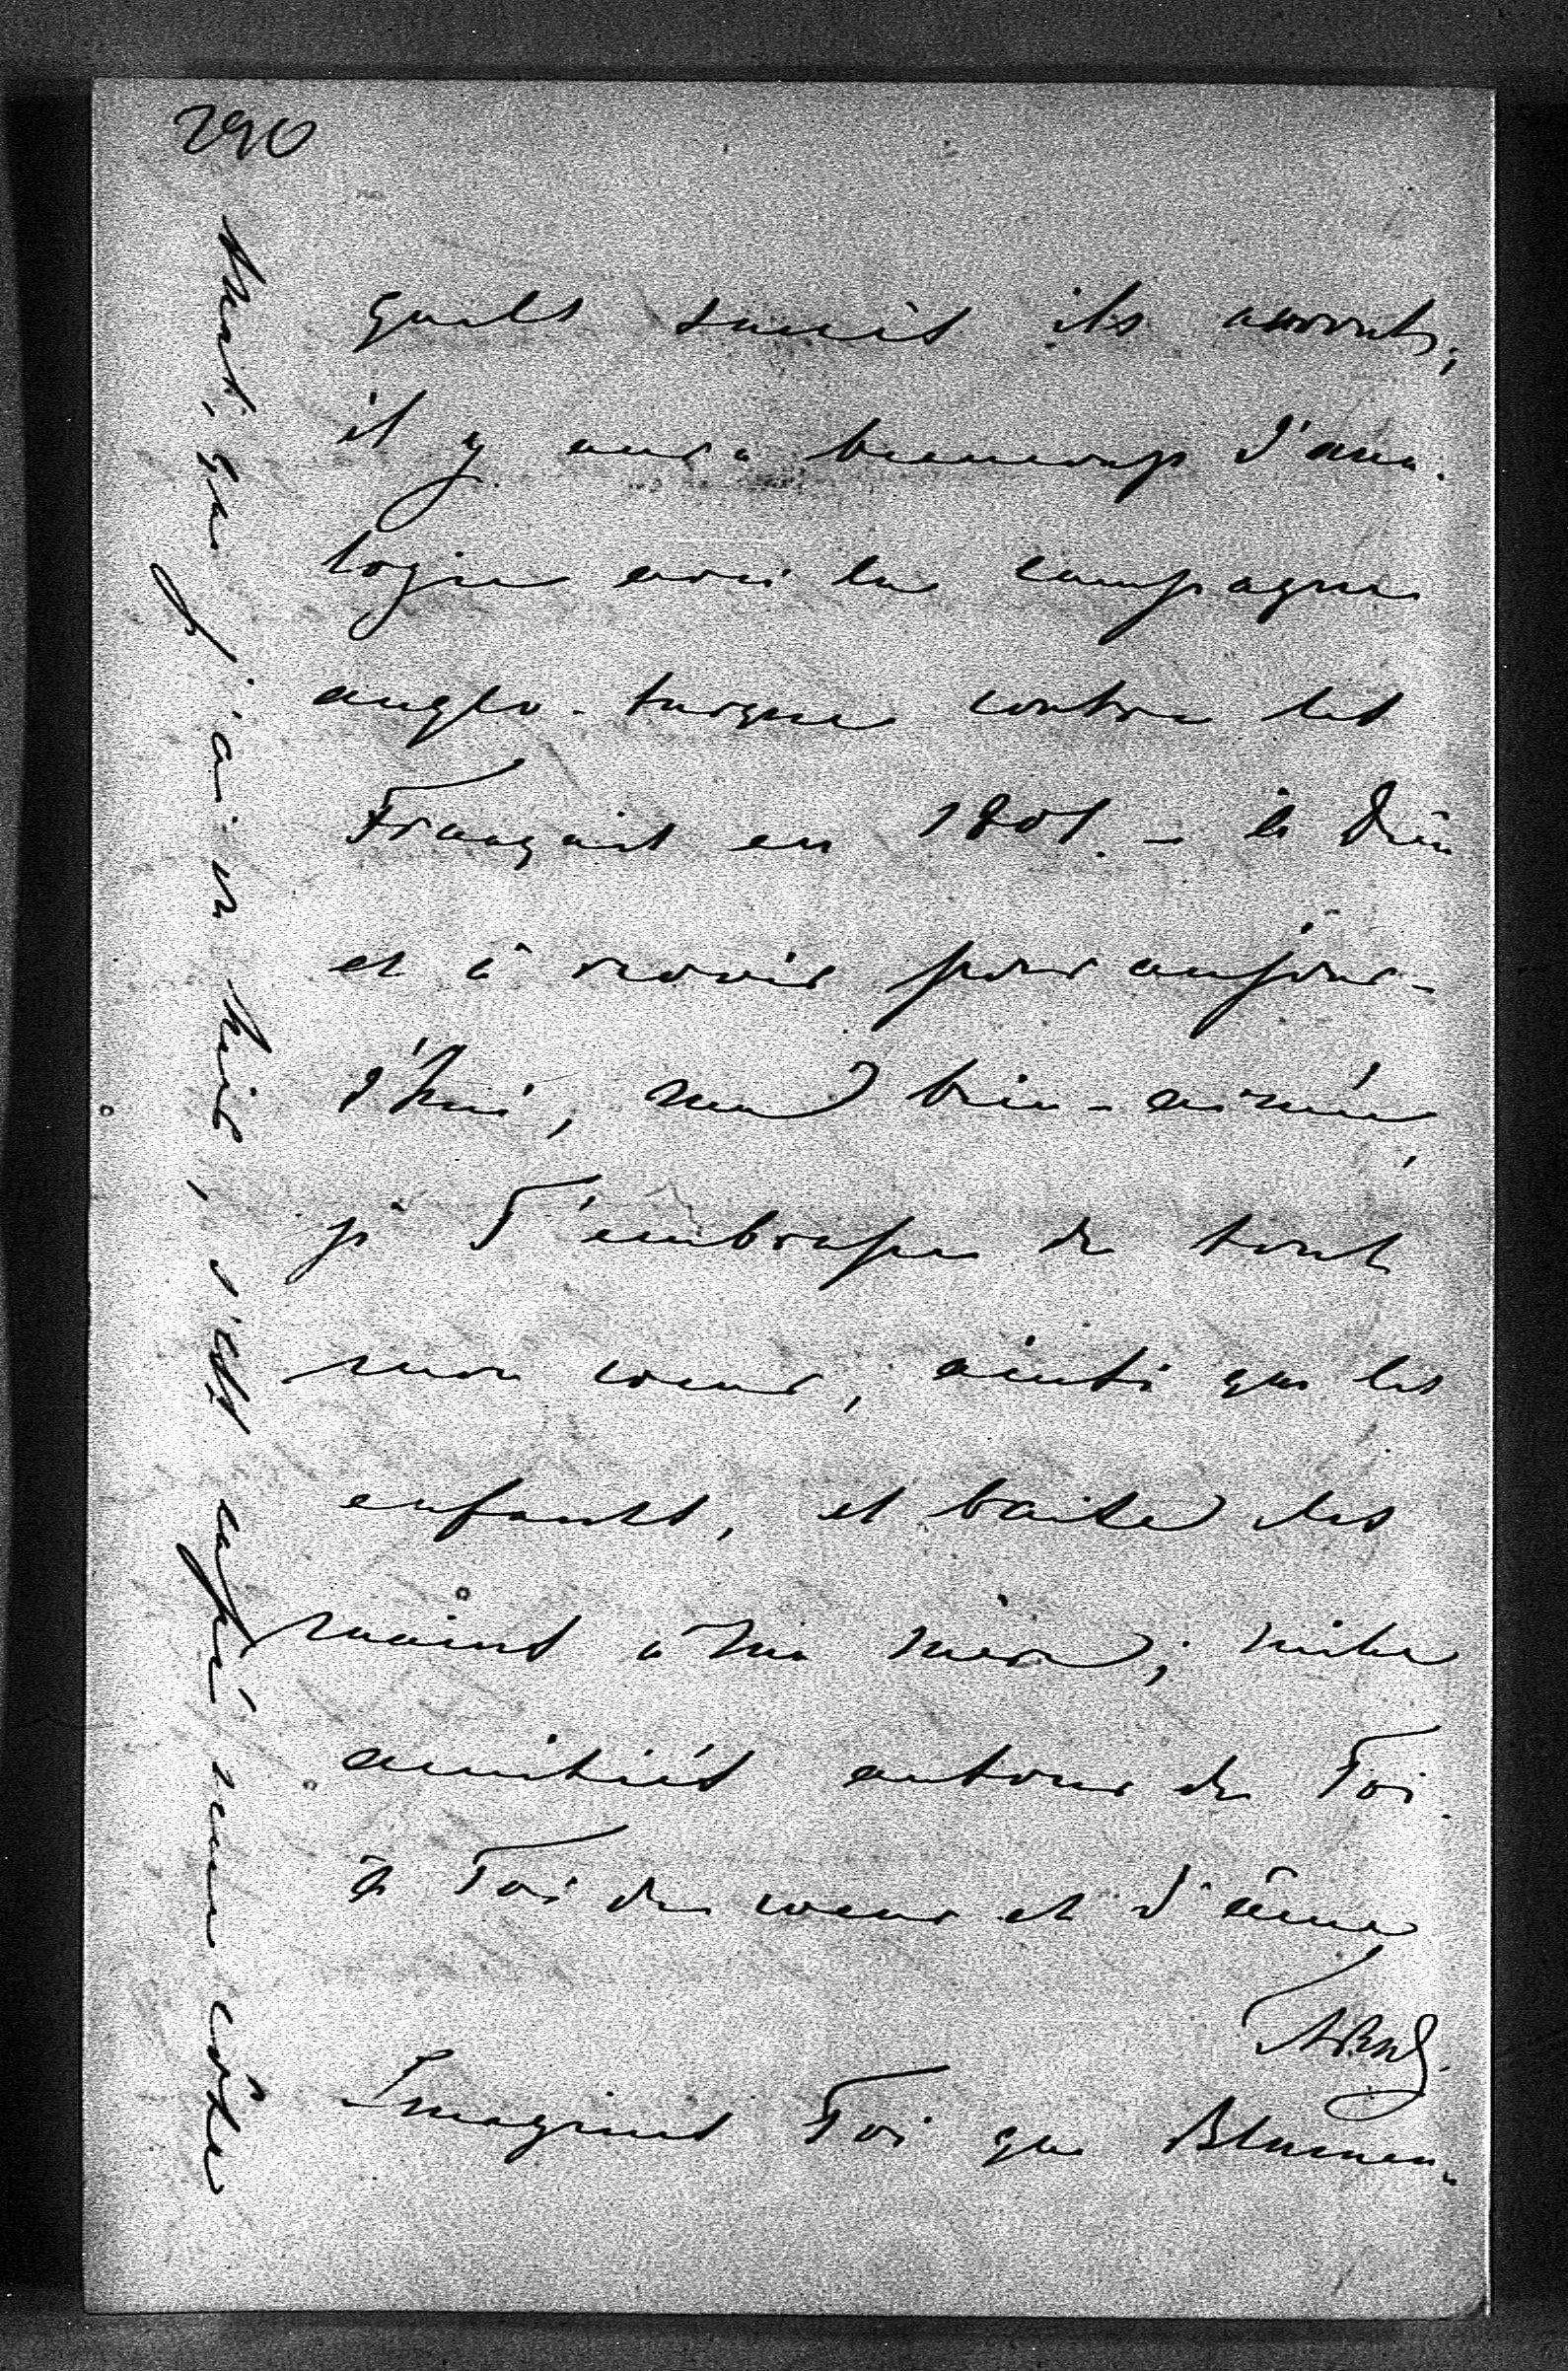 290
quels succès ils auront;
il y aura beaucoup d'ana-
logie avec la campagne
anglo-turque contre les
Français en 1801. - à Dieu
et à revoir pour aujour-
d'hui, ma bien-aimée,
je T'embrasse de tout
mon coeur, ainsi que les
enfants, et baise les
mains à ma mère; mille
amitiés autour de Toi.
à Toi de coeur et d'âme
Imagines Toi que Blumen-
j'ai hier, s'est cassé une côte